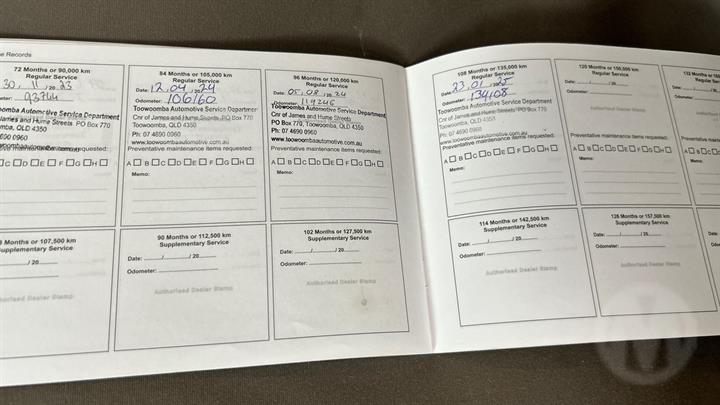 e Records
72 Months or 90,000 km
Regular Service
30, 11, 2023
93744
Toowoomba Automotive Service Department
James and Hume Streets PO Box 770
Toowoomba, QLD 4350
4690 0960
Preventative maintenance items requested:
C D E F G H
84 Months or 105,000 km
Regular Service
Date: 12, 04, 2024
Odometer: 106160
Toowoomba Automotive Service Department
Cnr of James and Hume Streets PO Box 770
Toowoomba, QLD 4350
Ph: 07 4690 0960
www.toowoombaautomotive.com.au
Preventative maintenance items requested:
A B C D E F G H
Memo:
96 Months or 120,000 km
Regular Service
Date: 05, 08, 2024
Odometer: 119246
Toowoomba Automotive Service Department
Cnr of James and Hume Streets
PO Box 770, Toowoomba, QLD 4350
Ph: 07 4690 0960
www.toowoombaautomotive.com.au
Preventative maintenance items requested:
A B C D E F G H
Memo:
Months or 107,500 km
Supplementary Service
/ 20
90 Months or 112,500 km
Supplementary Service
Date: / / 20
Odometer:
Authorised Dealer Stamp
102 Months or 127,500 km
Supplementary Service
Date: / / 20
Odometer:
Authorised Dealer Stamp
108 Months or 135,000 km
Regular Service
Date: 23, 01, 2025
Odometer: 134108
Toowoomba Automotive Service Department
Cnr of James and Hume Streets PO Box 770
Toowoomba, QLD 4350
Ph: 07 4690 0960
www.toowoombaautomotive.com.au
Preventative maintenance items requested:
A B C D E F G H
Memo:
120 Months or 150,000 km
Regular Service
Date: / / 20
Odometer:
Authorised Dealer Stamp
Preventative maintenance items requested:
A B C D E F G H
Memo:
132 Months or 16
Regular
Date:
Odometer:
Preventative maint
A B C
Memo:
114 Months or 142,500 km
Supplementary Service
Date: / / 20
Odometer:
Authorised Dealer Stamp
126 Months or 157,500 km
Supplementary Service
Date: / / 20
Odometer:
Authorised Dealer Stamp
Date:
Odometer: